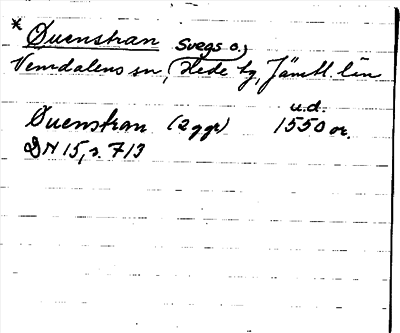 * Øuenstran Svegs o.,
Vemdalens sn, Hede tg, Jämtl. län
u.d.
Øuenstran (2 ggr) 1550 or.
DN 15, s. 713